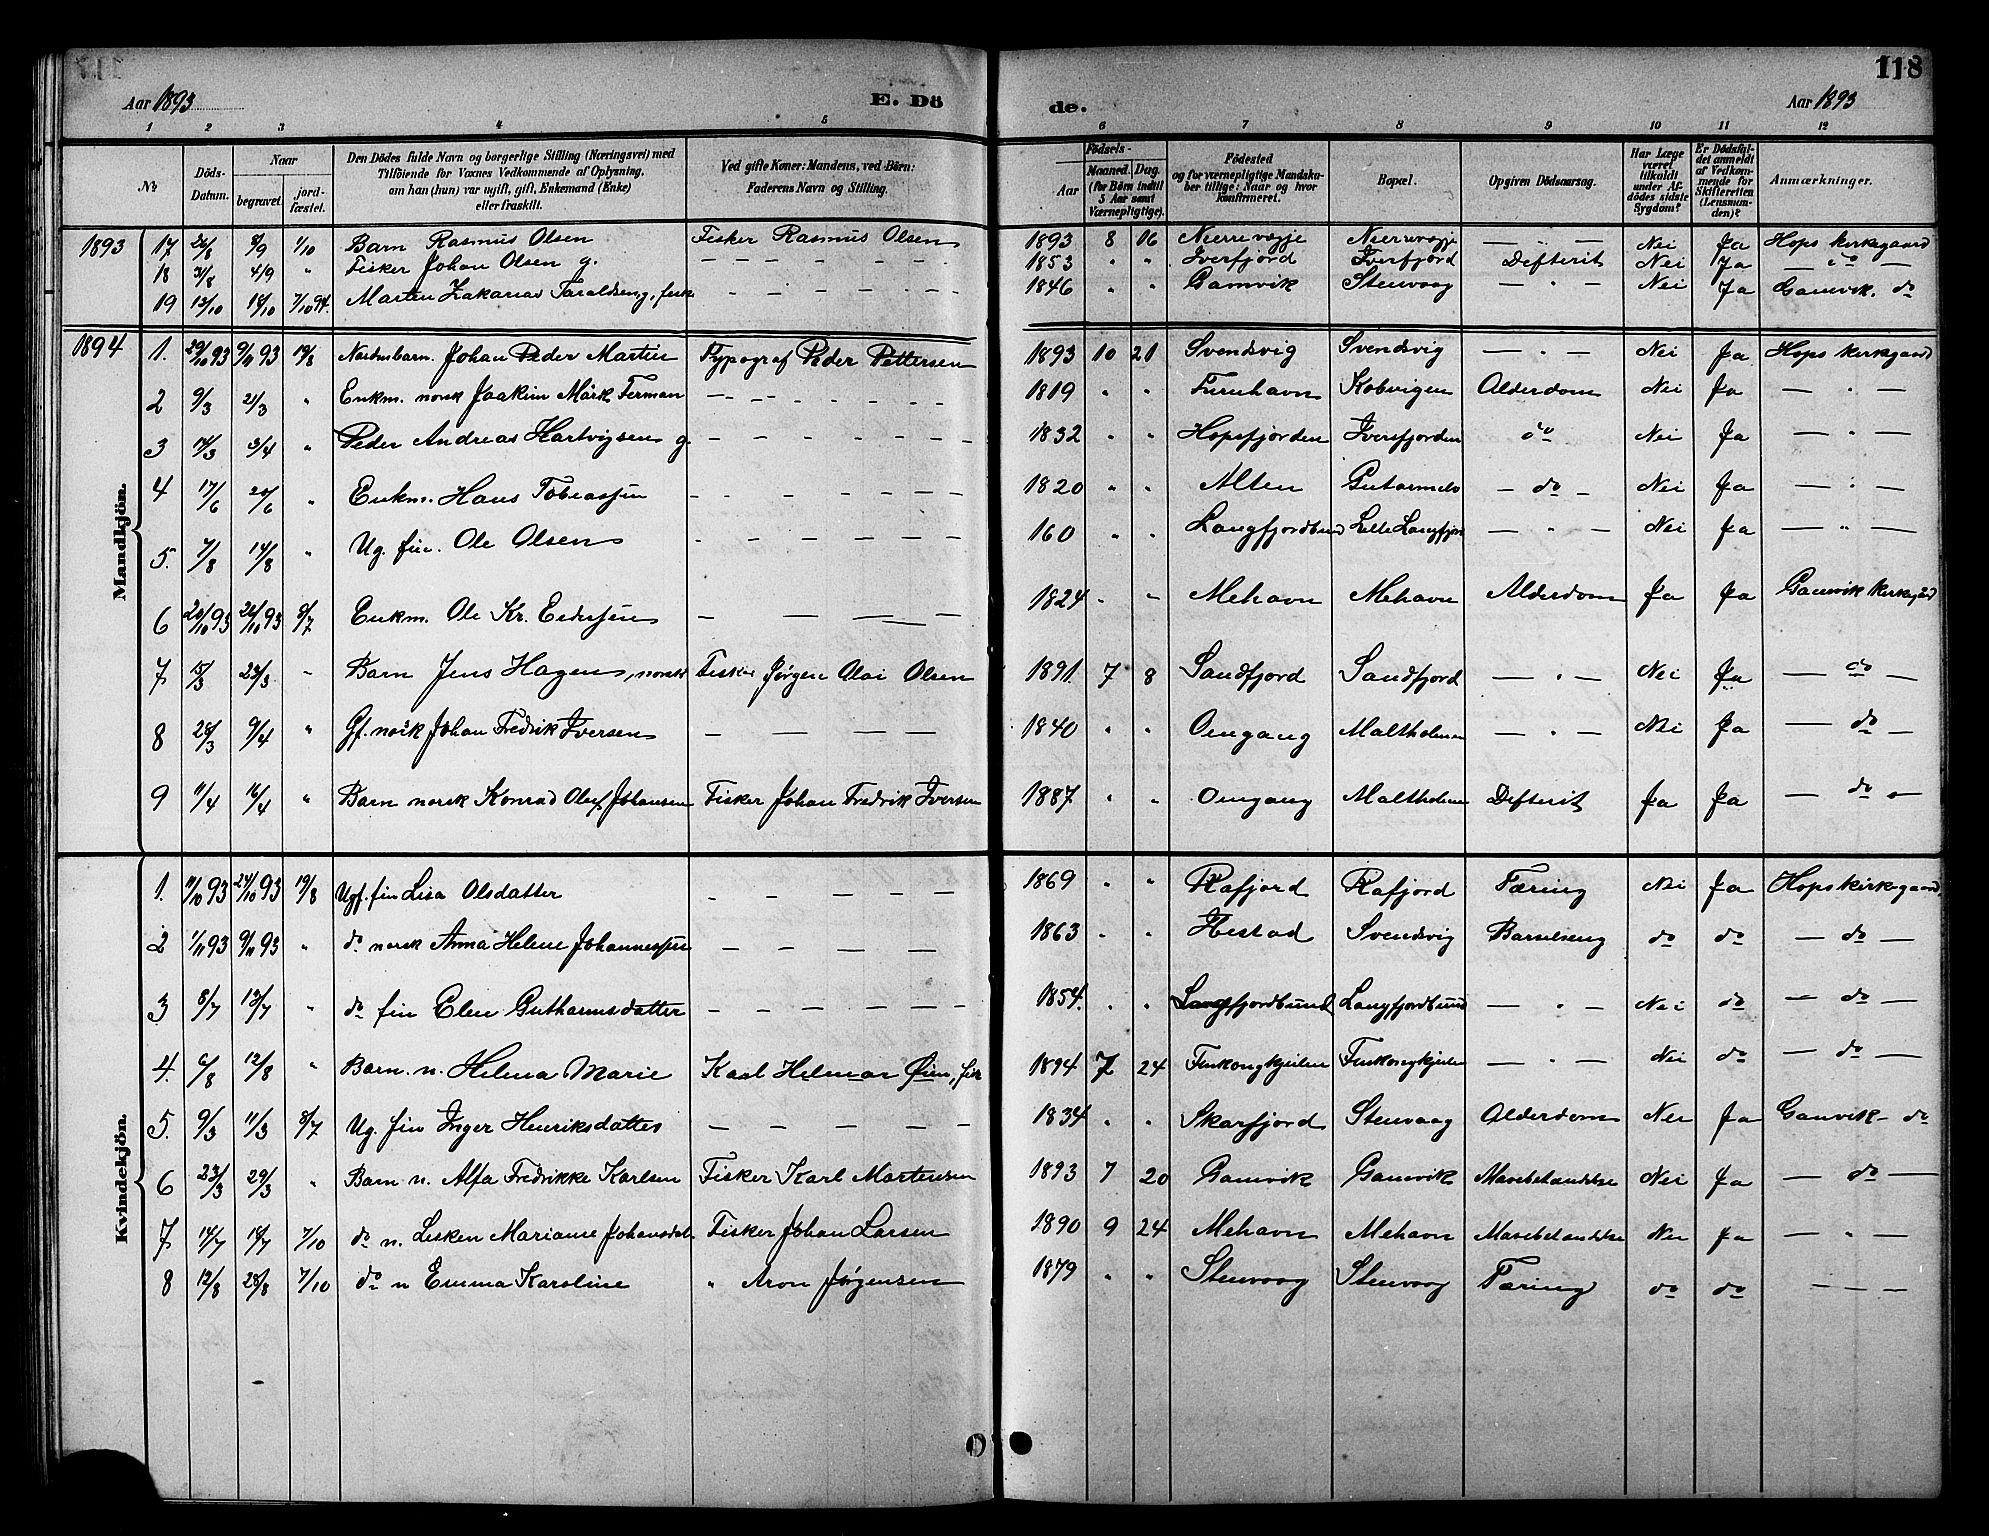 118
Aar 1893 E. Dö de. Aar 1893
1 2 3 4 5 6 7 8 9 10 11 12
No Döds-Datum. Naar begravet. jord-fæstet. Den Dödes fulde Navn og borgerlige Stilling (Næringsvei) med Tilföiende for Voxnes Vedkommende af Oplysning, om han (hun) var ugift, gift, Enkemand (Enke) eller fraskilt. Ved gifte Koner: Mandens, ved Börn: Faderens Navn og Stilling. Födsels- Aar Maaned. Dag. (for Börn indtil 5 Aar samt Værnepligtige). Födested og for værnepligtige Mandskaber tillige: Naar og hvor konfirmeret. Bopæl. Opgiven Dödsaarsag. Har Læge været tilkaldt under Afdödes sidste Sygdom? Er Dödsfaldet anmeldt af Vedkommende for Skifteretten (Lensmanden)? Anmærkninger.
1893 17 26/8 3/9 1/10 Barn Rasmus Olsen Fisker Rasmus Olsen 1893 8 16 — " — Nei Ja Hops kirkegaard
18 31/8 4/9 " Fisker Johan Olsen g. — — — 1853 " " Iverfjord Iverfjord Defterit Nei Ja — do —
19 13/10 18/10 7/10 94. Marten Zakarias Taraldsen g, fisk — — — 1846 " " Gamvik Stenvaag — " — Nei Ja Gamvik. do
Mandkjön.
1894 1. 29/10 93 9/11 93 19/8 Norskbarn. Johan Peder Martin Typograf Peder Pettersen 1893 10 21 Svendsvig Svendsvig — " — Nei Ja Hops kirkegaard
2 9/3 21/3 " Enkm. norsk Joakim Mörk Ferman — — — 1819 " " Furuhavn Kobvigen Alderdom Nei Ja — " —
3 14/3 3/4 " Peder Andreas Hartvigsen g — — — 1832 " " Hopsfjorden Iversfjorden do Nei Ja — " —
4 17/6 20/6 " Enkm. Hans Tobiassen — — — 1820 " " Alten — do — Nei Ja — " —
5. 7/8 14/8 " Ug. fin. Ole Olsen — — — 160 " " Langfjordbund Lille Langfjor — " — Nei Ja — " —
6 20/10 93 26/10 93 8/7 Enkm. Ole Kr. Ederssen — — — 1824 " " Mehavn Mehavn Alderdom Ja Ja Gamvik kirkegård
7 15/3 23/3 " Barn Jens Hagen, norsk Fisker Jørgen Olai Olsen 1891. 7 8 Sandfjord Sandfjord — " — Nei Ja — do —
8 28/3 9/4 " Gf. norsk Johan Fredrik Iversen — — — 1840 " " Omgang Maltholmen — " — Nei Ja — do —
9 11/4 16/4 " Barn norsk Konrad Oluf Johansen Fisker Johan Fredrik Iversen 1887 " " Omgang Maltholmen Defterit Ja Ja — do —
Kvindekjön.
1. 11/10 93 24/10 93 19/8 Ugf. fin Lisa Olsdatter — — — 1869 " " Rafjord Rafjord Tæring Nei Ja Hops kirkegaard
2 1/11 93 9/11 93 " do norsk Anna Helene Johannessen — — — 1863 " " Hestad Svendsvig Barselseng do do — do —
3 8/7 13/7 " do fin Elen Guthormsdatter — — — 1854. " " Langfjordbund Langfjordbund — " — Nei do — do —
4. 6/8 12/8 " Barn. n. Helena Marie Karl Helmar Øien, fisk 1894 7 24 Finkongkjeilen Finkongkjeilen — " — Nei do — do —
5. 9/3 11/3 8/7 Ug. fin Inger Henriksdatter — — — 1834 " " Skarfjord Stenvaag Alderdom Nei Ja Gamvik do
6 23/3 29/3 " Barn n. Alfa Fredrikke Karlsen Fisker Karl Martensen 1893 7 20 Gamvik Gamvik Mavebetændelse Nei Ja — do —
7 14/7 18/7 7/10 do n. Lisken Marianne Johansdat. Fisker Johan Larsen 1890 9 24 Mehavn Mehavn Mavebetændelse Nei Ja — " —
8 12/8 28/8 7/10 do n Emma Karoline " Aron Jørgensen 1879 " " Stenvaag Stenvaag Tæring do do — — —